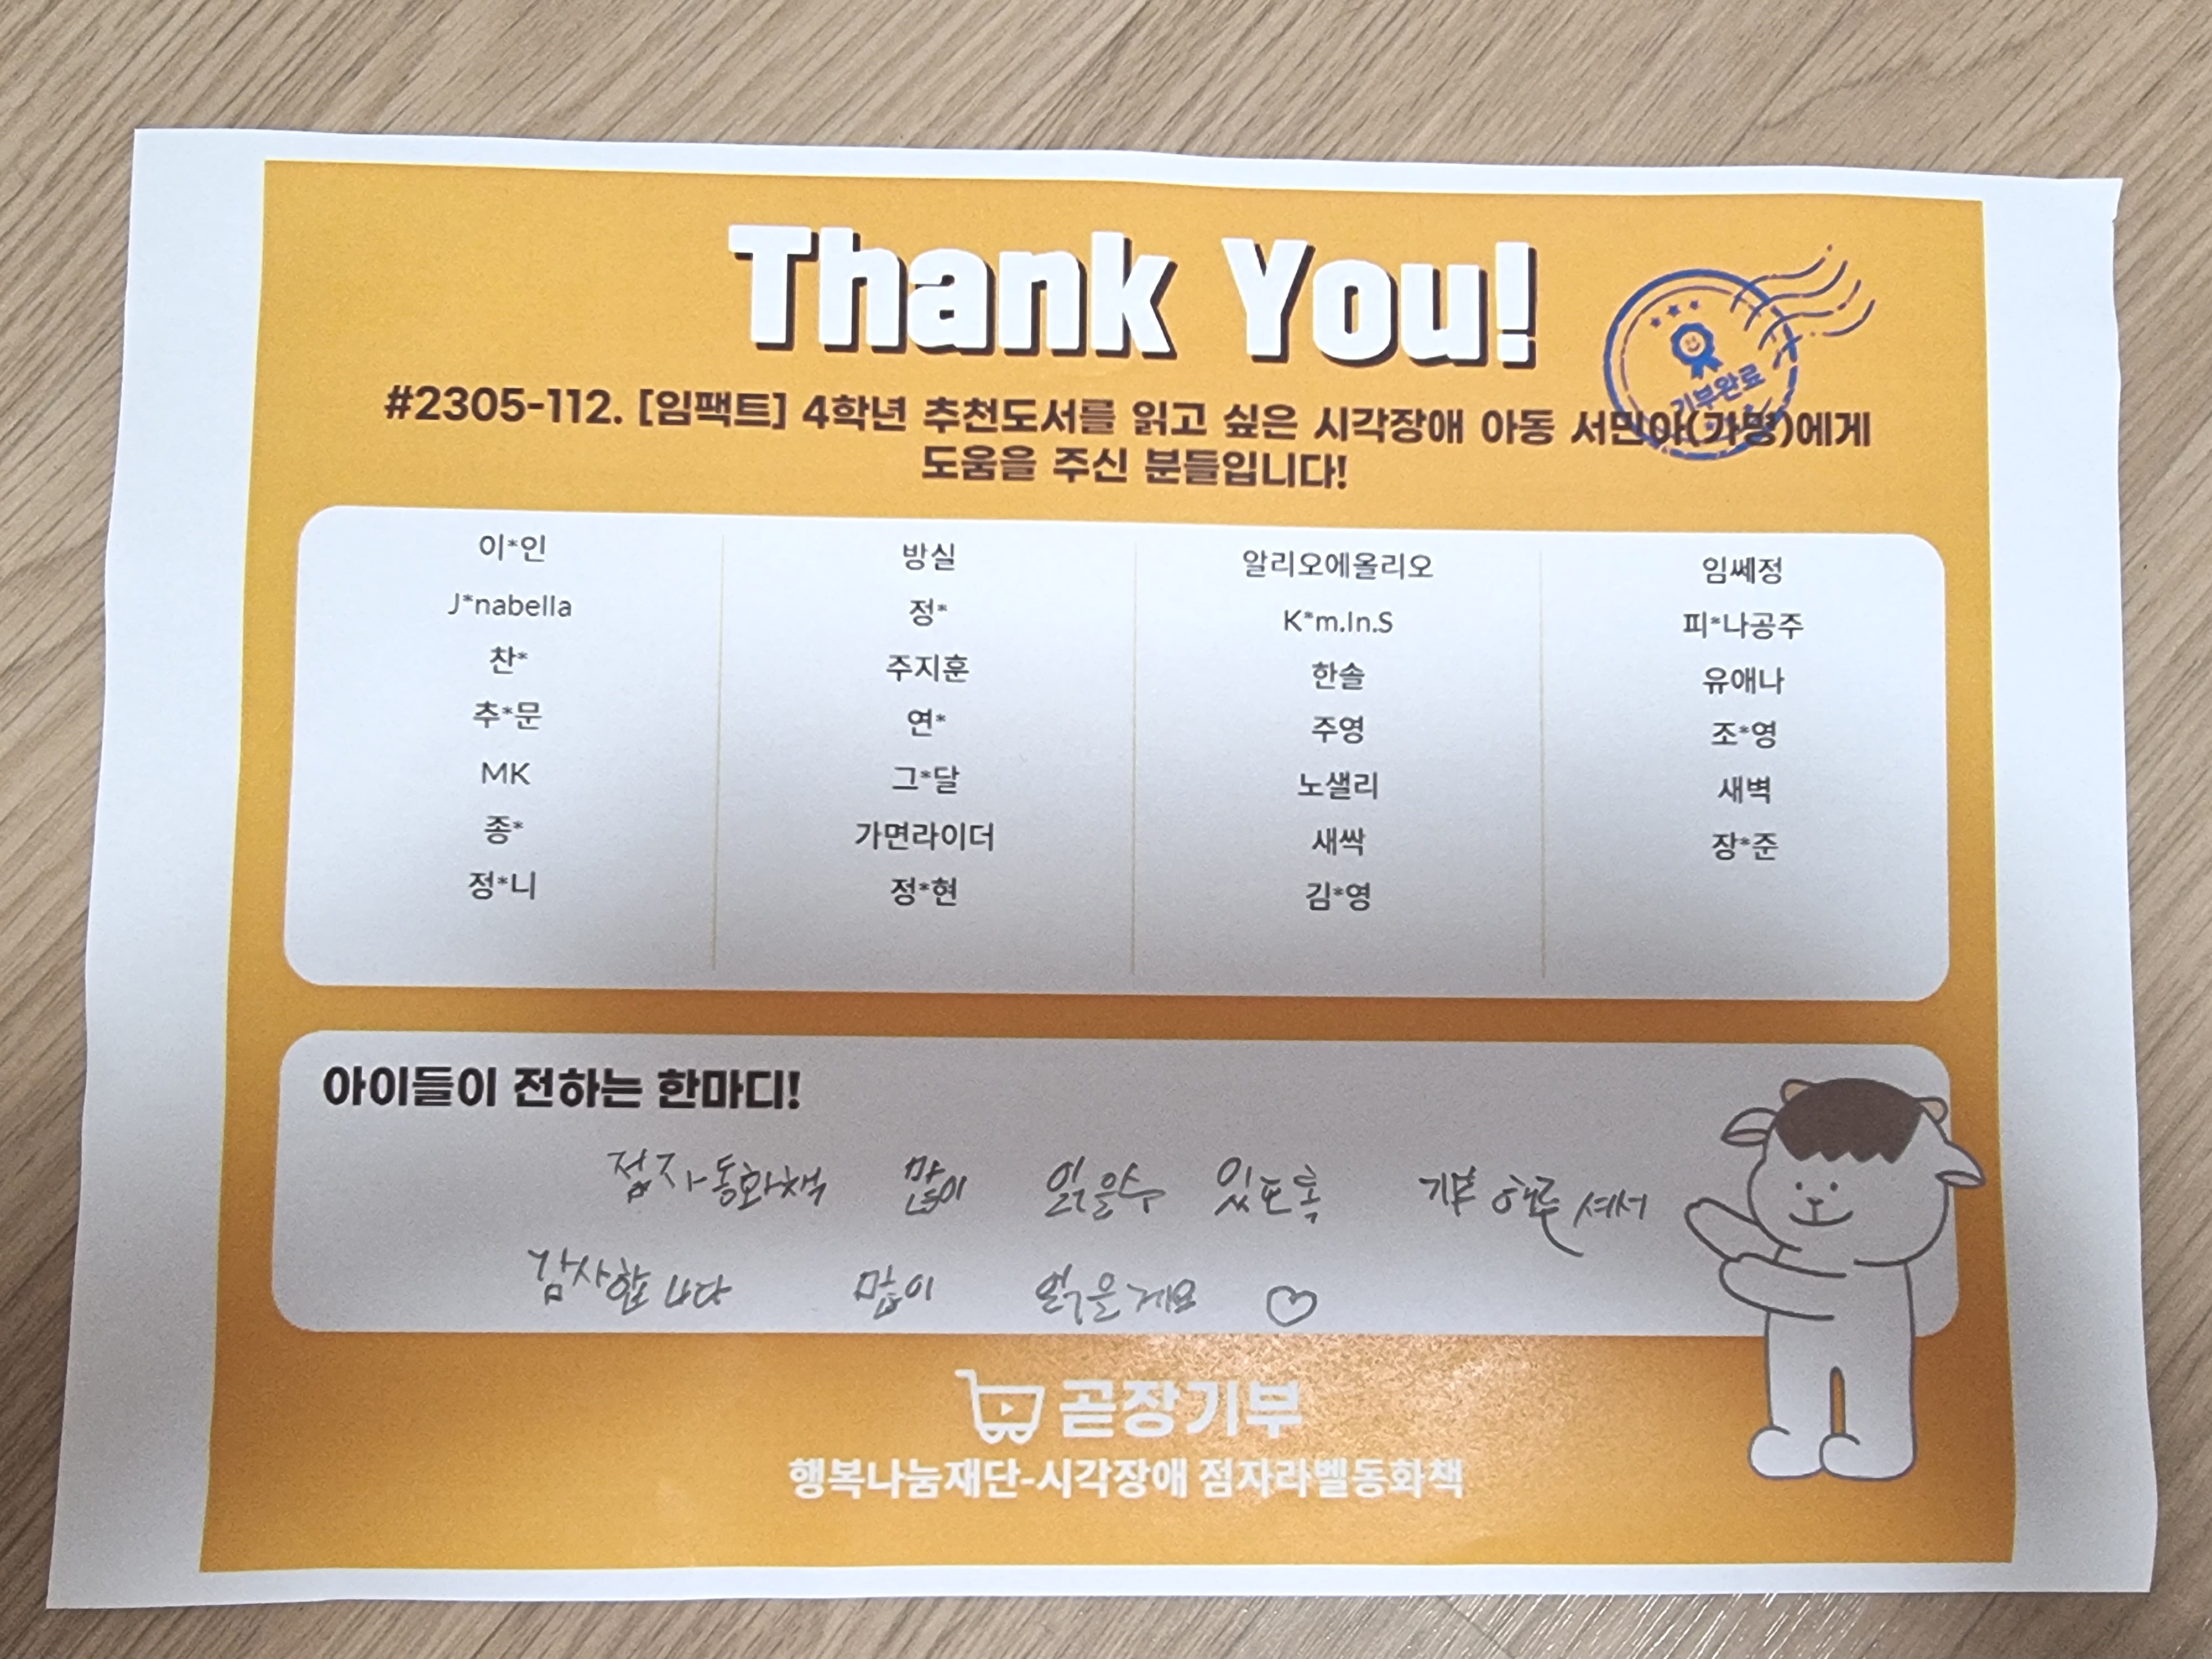 Thank You!
기부완료
#2305-112. [임팩트] 4학년 추천도서를 읽고 싶은 시각장애 아동 서민아(가명)에게
도움을 주신 분들입니다!
이*인 방실 알리오에올리오 임쎄정
J*nabella 정* K*m.In.S 피*나공주
찬* 주지훈 한솔 유애나
추*문 연* 주영 조*영
MK 그*달 노샐리 새벽
종* 가면라이더 새싹 장*준
정*니 정*현 김*영
아이들이 전하는 한마디!
점자동화책 많이 읽을수 있도록 기부 해주셔서
감사합니다 많이 읽을게요 ♡
곧장기부
행복나눔재단-시각장애 점자라벨동화책